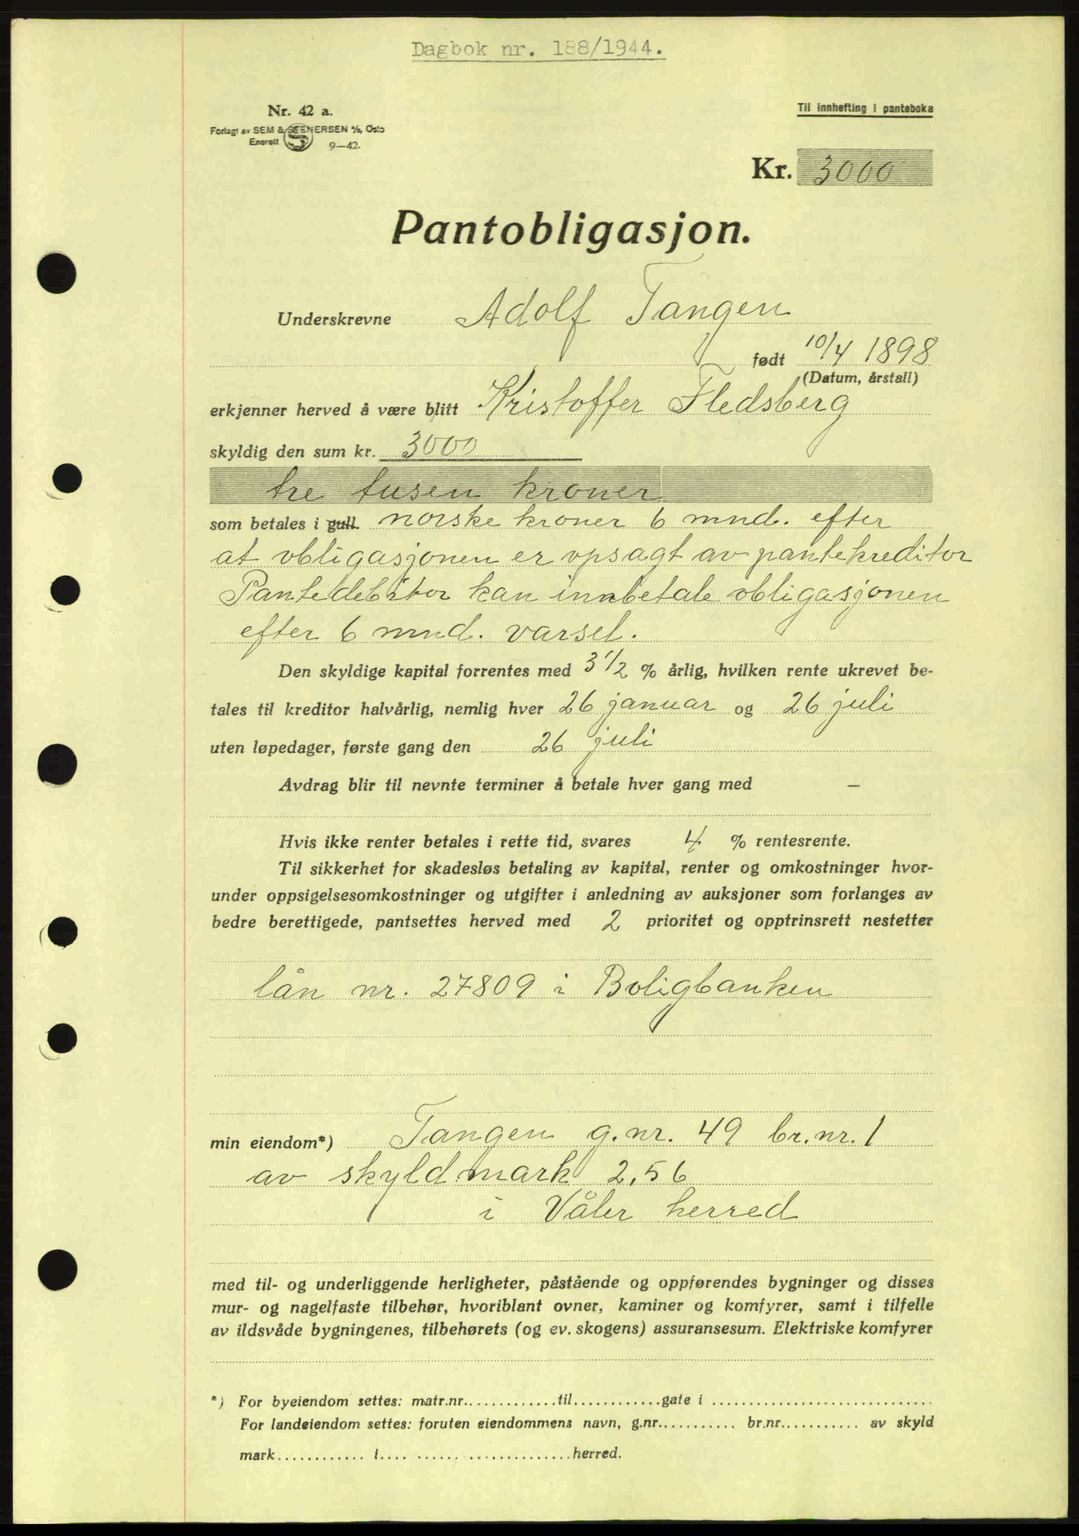 Dagbok nr. 188/1944.
Nr. 42 a.
Til innhefting i panteboka
Forlagt av SEM & STENERSEN A/S, Oslo
Enerett
9—42.
Kr. 3000
Pantobligasjon.
Underskrevne Adolf Tangen
født 10/4 1898
(Datum, årstall)
erkjenner herved å være blitt Kristoffer Fledsberg
skyldig den sum kr. 3000
tre tusen kroner
som betales i gull. norske kroner 6 mnd. efter
at obligasjonen er opsagt av pantekreditor
Pantedebitor kan innbetale obligasjonen
efter 6 mnd. varsel.
Den skyldige kapital forrentes med 3 1/2 % årlig, hvilken rente ukrevet be-
tales til kreditor halvårlig, nemlig hver 26 januar og 26 juli
uten løpedager, første gang den 26 juli
Avdrag blir til nevnte terminer å betale hver gang med —
Hvis ikke renter betales i rette tid, svares 4 % rentesrente.
Til sikkerhet for skadesløs betaling av kapital, renter og omkostninger hvor-
under oppsigelsesomkostninger og utgifter i anledning av auksjoner som forlanges av
bedre berettigede, pantsettes herved med 2 prioritet og opptrinsrett nestetter
lån nr. 27809 i Boligbanken
min eiendom*) Tangen g.nr. 49 br.nr. 1
av skyldmark 2,56
i Våler herred
med til- og underliggende herligheter, påstående og oppførendes bygninger og disses
mur- og nagelfaste tilbehør, hvoriblant ovner, kaminer og komfyrer, samt i tilfelle
av ildsvåde bygningenes, tilbehørets (og ev. skogens) assuransesum. Elektriske komfyrer
*) For byeiendom settes: matr.nr..............til.............gate i ..............................
For landeiendom settes: foruten eiendommens navn, g.nr........... br.nr........... av skyld
mark............ i.... .......................herred.